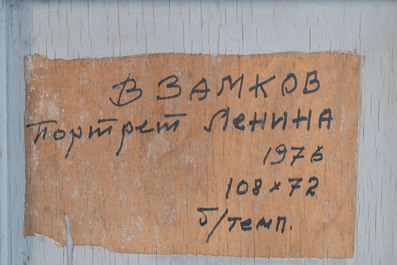 В ЗАМКОВ
Портрет Ленина
1976
108×72
б/темп.